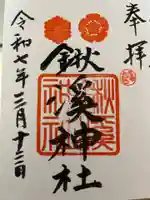 奉拝
鍬溪神社
令和七年三月十三日